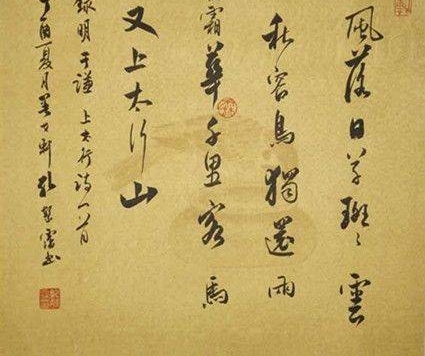 風落日草斑〻雲
秋容鳥獨還兩
霜華千里客馬
又上太行山
錄明于谦上太行詩一首
酉夏月軒孔书